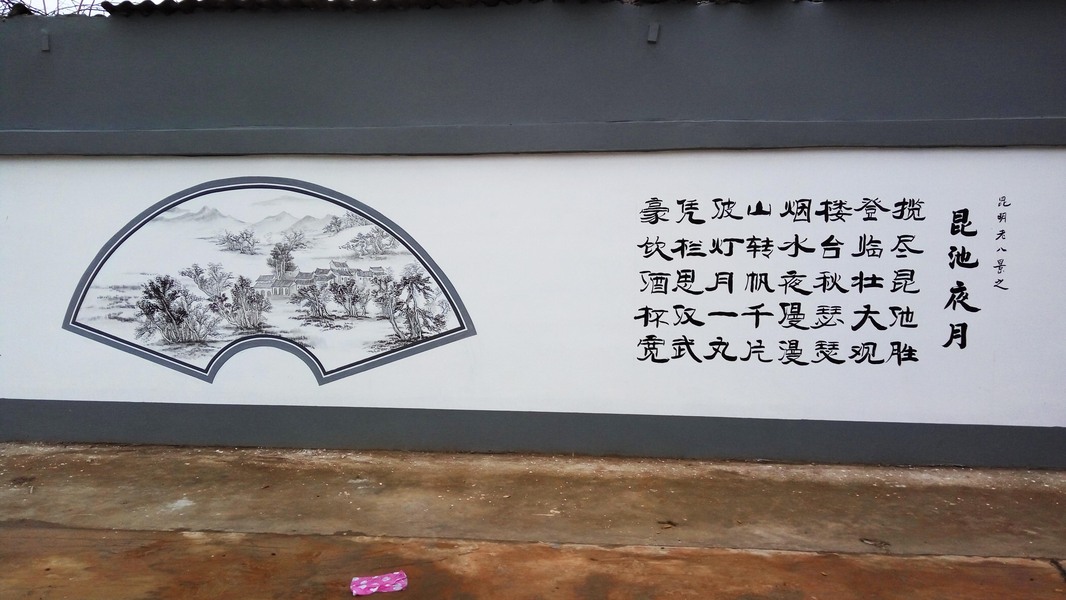 昆明老八景之
昆池夜月
揽尽昆池胜
登临壮大观
楼台秋瑟瑟
烟水夜漫漫
山转帆千片
波灯月一丸
凭栏思汉武
豪饮酒杯宽